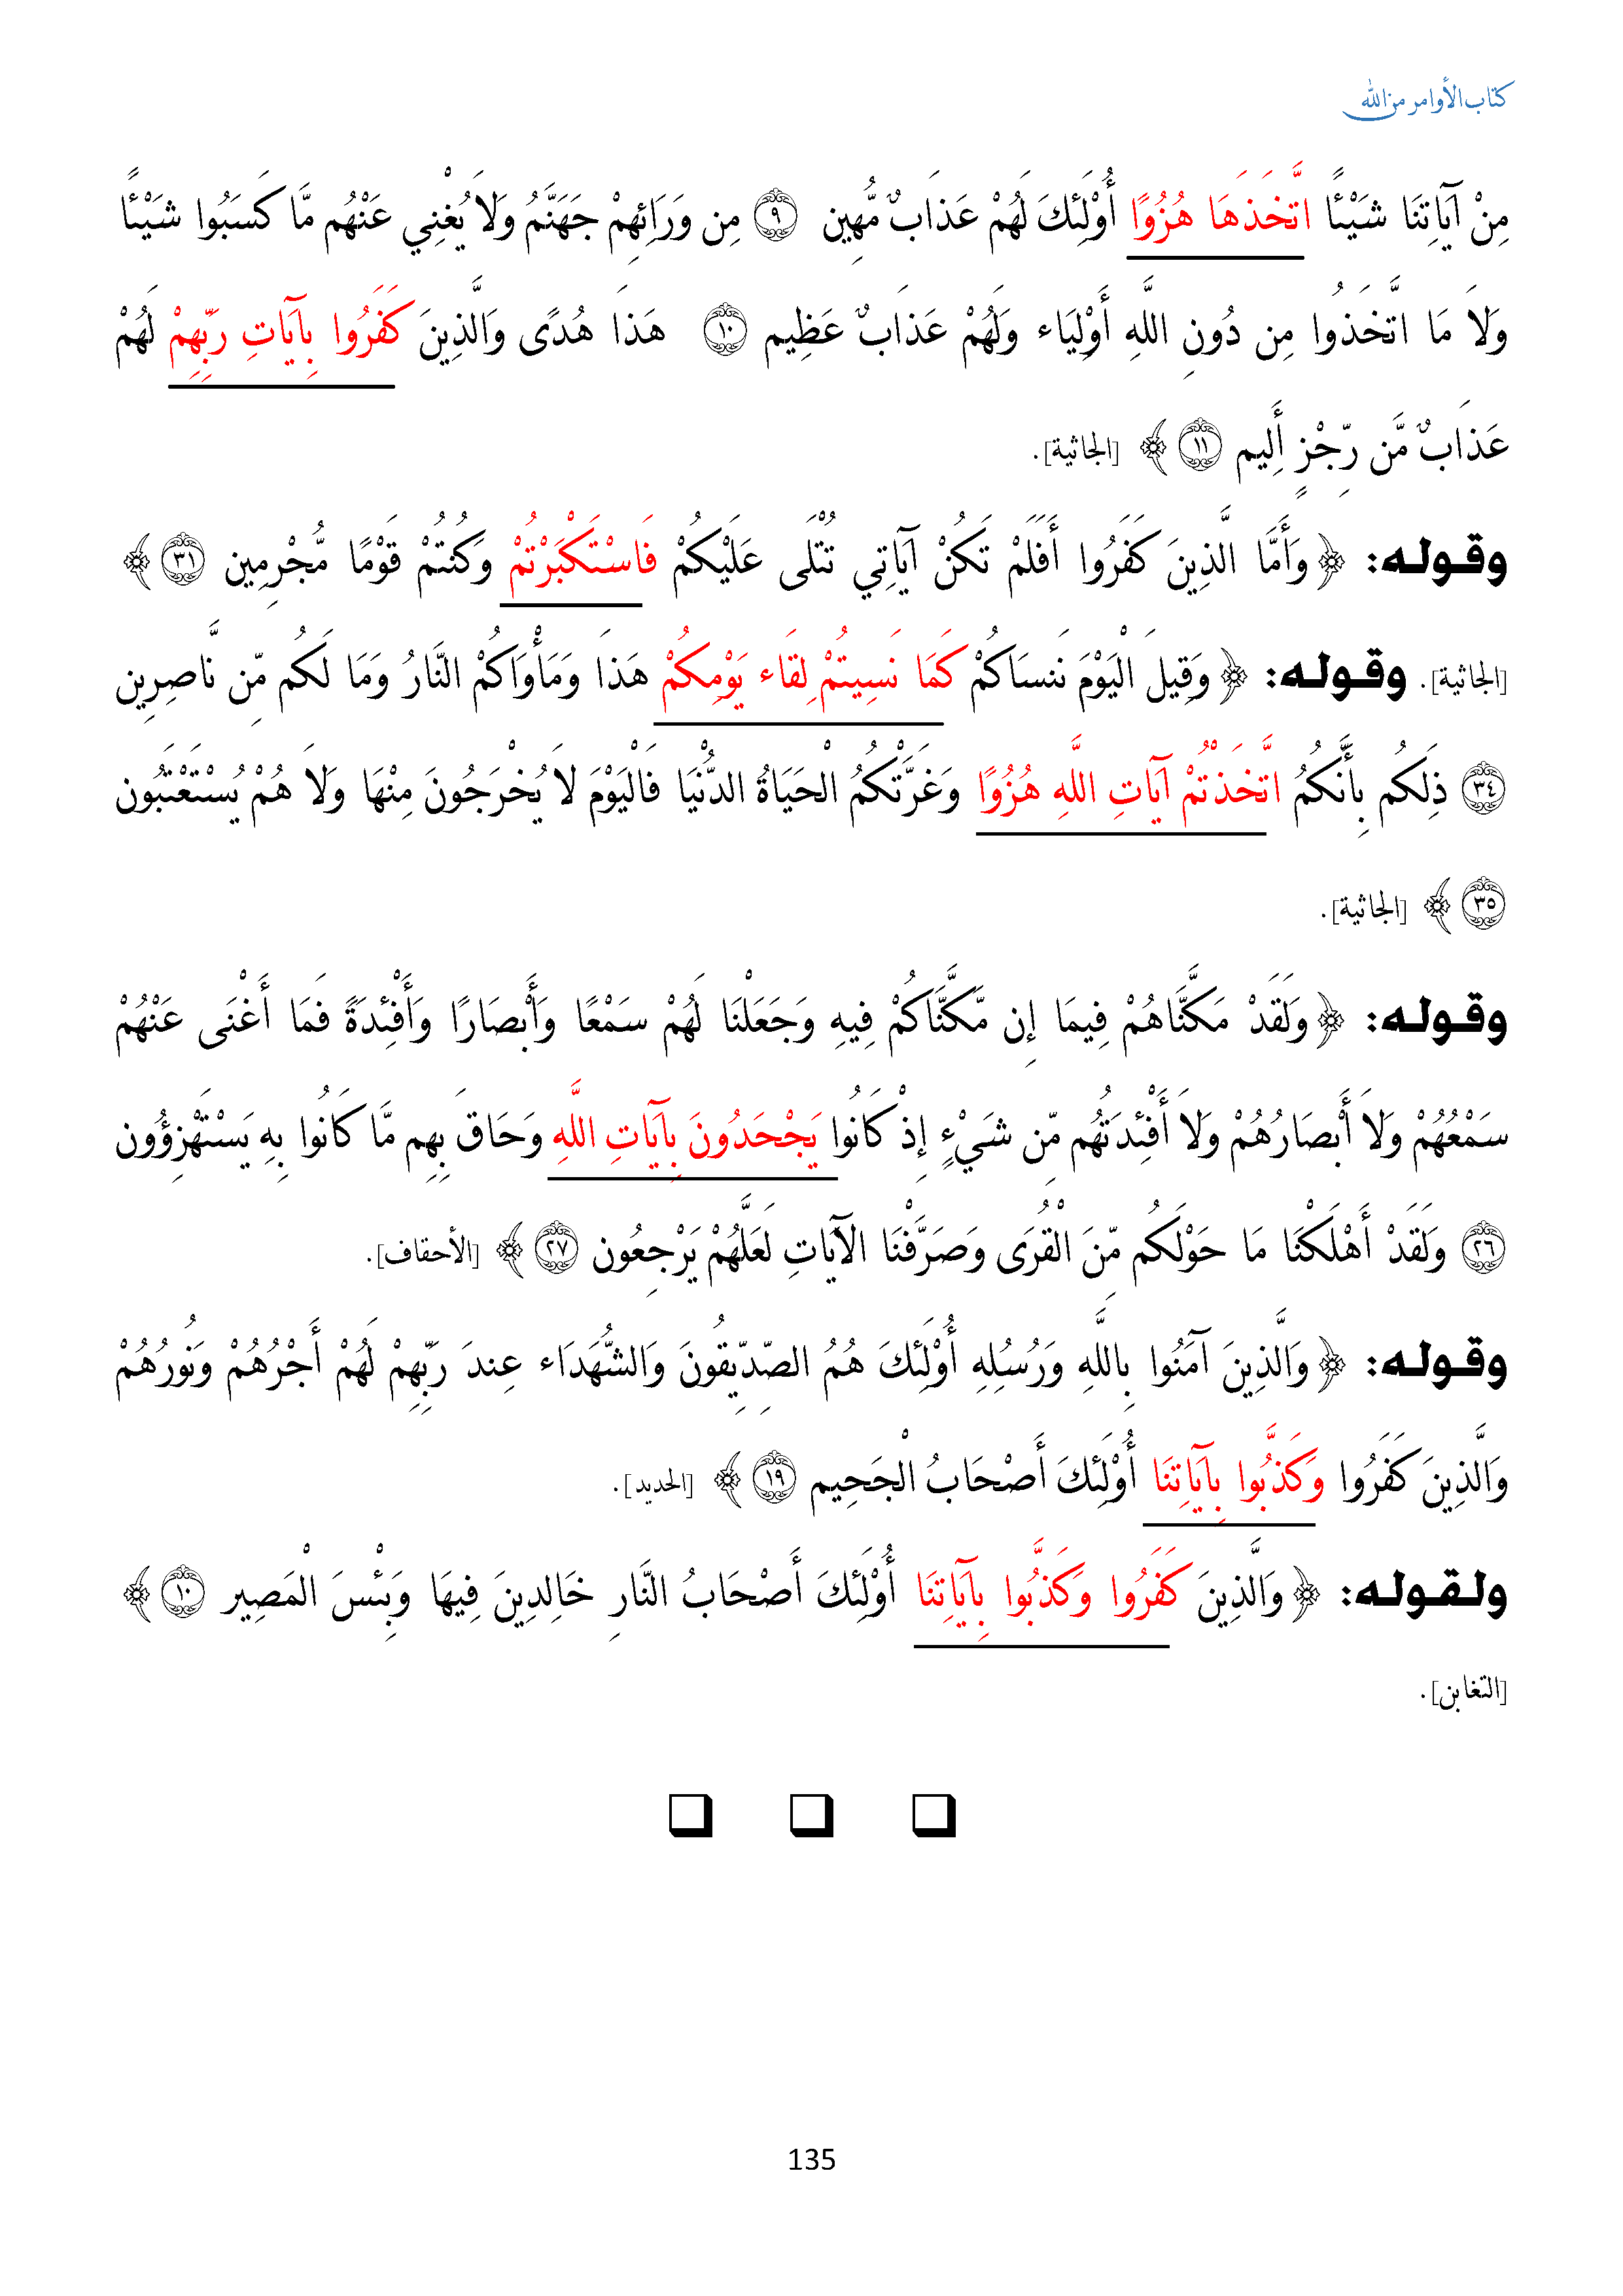 كتاب الأوامر من الله
مِنْ آيَاتِنَا شَيْئًا اتَّخَذَهَا هُزُوًا أُوْلَئِكَ لَهُمْ عَذَابٌ مُّهِين ۝٩ مِن وَرَائِهِمْ جَهَنَّمُ وَلَا يُغْنِي عَنْهُم مَّا كَسَبُوا شَيْئًا
وَلَا مَا اتَّخَذُوا مِن دُونِ اللَّهِ أَوْلِيَاء وَلَهُمْ عَذَابٌ عَظِيم ۝١٠ هَذَا هُدًى وَالَّذِينَ كَفَرُوا بِآيَاتِ رَبِّهِمْ لَهُمْ
عَذَابٌ مَّن رِّجْزٍ أَلِيم ۝١١ ﴾ [الجاثية].
وقـولـه: ﴿ وَأَمَّا الَّذِينَ كَفَرُوا أَفَلَمْ تَكُنْ آيَاتِي تُتْلَى عَلَيْكُمْ فَاسْتَكْبَرْتُمْ وَكُنتُمْ قَوْمًا مُّجْرِمِين ۝٣١ ﴾
[الجاثية]. وقـولـه: ﴿ وَقِيلَ الْيَوْمَ نَنسَاكُمْ كَمَا نَسِيتُمْ لِقَاء يَوْمِكُمْ هَذَا وَمَأْوَاكُمْ النَّارُ وَمَا لَكُم مِّن نَّاصِرِين
۝٣٤ ذَلِكُم بِأَنَّكُمُ اتَّخَذْتُمْ آيَاتِ اللَّهِ هُزُوًا وَغَرَّتْكُمُ الْحَيَاةُ الدُّنْيَا فَالْيَوْمَ لَا يُخْرَجُونَ مِنْهَا وَلَا هُمْ يُسْتَعْتَبُون
۝٣٥ ﴾ [الجاثية].
وقـولـه: ﴿ وَلَقَدْ مَكَّنَّاهُمْ فِيمَا إِن مَّكَّنَّاكُمْ فِيهِ وَجَعَلْنَا لَهُمْ سَمْعًا وَأَبْصَارًا وَأَفْئِدَةً فَمَا أَغْنَى عَنْهُمْ
سَمْعُهُمْ وَلَا أَبْصَارُهُمْ وَلَا أَفْئِدَتُهُم مِّن شَيْءٍ إِذْ كَانُوا يَجْحَدُونَ بِآيَاتِ اللَّهِ وَحَاقَ بِهِم مَّا كَانُوا بِهِ يَسْتَهْزِؤُون
۝٢٦ وَلَقَدْ أَهْلَكْنَا مَا حَوْلَكُم مِّنَ الْقُرَى وَصَرَّفْنَا الْآيَاتِ لَعَلَّهُمْ يَرْجِعُون ۝٢٧ ﴾ [الأحقاف].
وقـولـه: ﴿ وَالَّذِينَ آمَنُوا بِاللَّهِ وَرُسُلِهِ أُوْلَئِكَ هُمُ الصِّدِّيقُونَ وَالشُّهَدَاء عِندَ رَبِّهِمْ لَهُمْ أَجْرُهُمْ وَنُورُهُمْ
وَالَّذِينَ كَفَرُوا وَكَذَّبُوا بِآيَاتِنَا أُوْلَئِكَ أَصْحَابُ الْجَحِيم ۝١٩ ﴾ [الحديد].
ولـقـولـه: ﴿ وَالَّذِينَ كَفَرُوا وَكَذَّبُوا بِآيَاتِنَا أُوْلَئِكَ أَصْحَابُ النَّارِ خَالِدِينَ فِيهَا وَبِئْسَ الْمَصِير ۝١٠ ﴾
[التغابن].
135